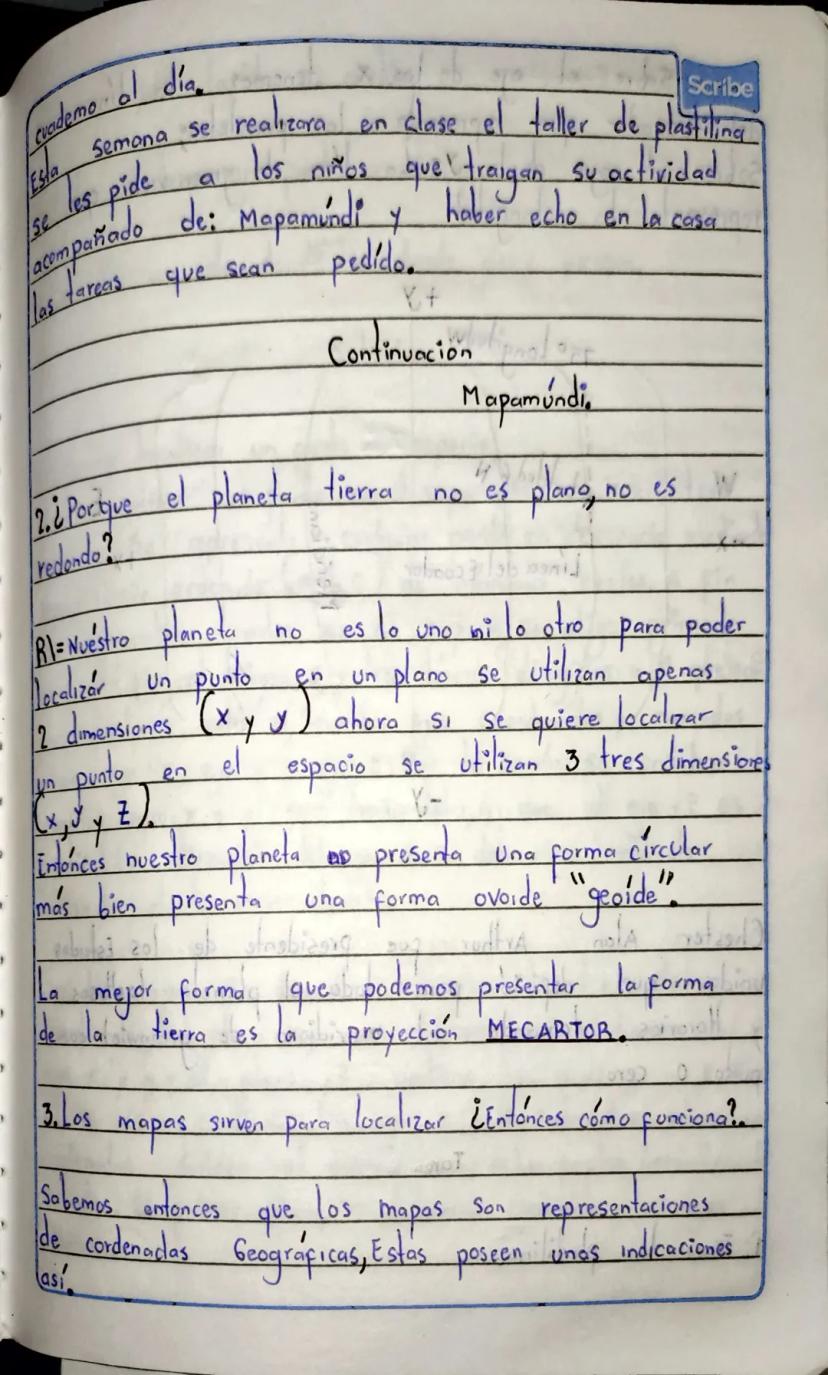 Scribe
cuaderno al día.
Esta semana se realizara en clase el taller de plastilina
se les pide a los niños que traigan su actividad
acompañado de: Mapamúndi y haber echo en la casa
las tareas que sean pedído.
Continuación
Mapamúndi.
2.¿Porque el planeta tierra no es plano, no es
redondo?
R1=Nuéstro planeta no es lo uno ni lo otro para poder
localizár un punto en un plano se utilizan apenas
2 dimensiones (x y y) ahora si se quiere localizar
un punto en el espacio se utilizan 3 tres dimensiones
(x, y y z).
Entónces nuestro planeta no presenta una forma círcular
más bien presenta una forma ovoide "geoíde".
La mejor forma que podemos presentar la forma
de la tierra es la proyección MECARTOR.
3. Los mapas sirven para localizar ¿Entónces cómo funciona?.
Sabemos entonces que los mapas son representaciones
de cordenadas Geográficas, Estas poseen unas indicaciones
así.